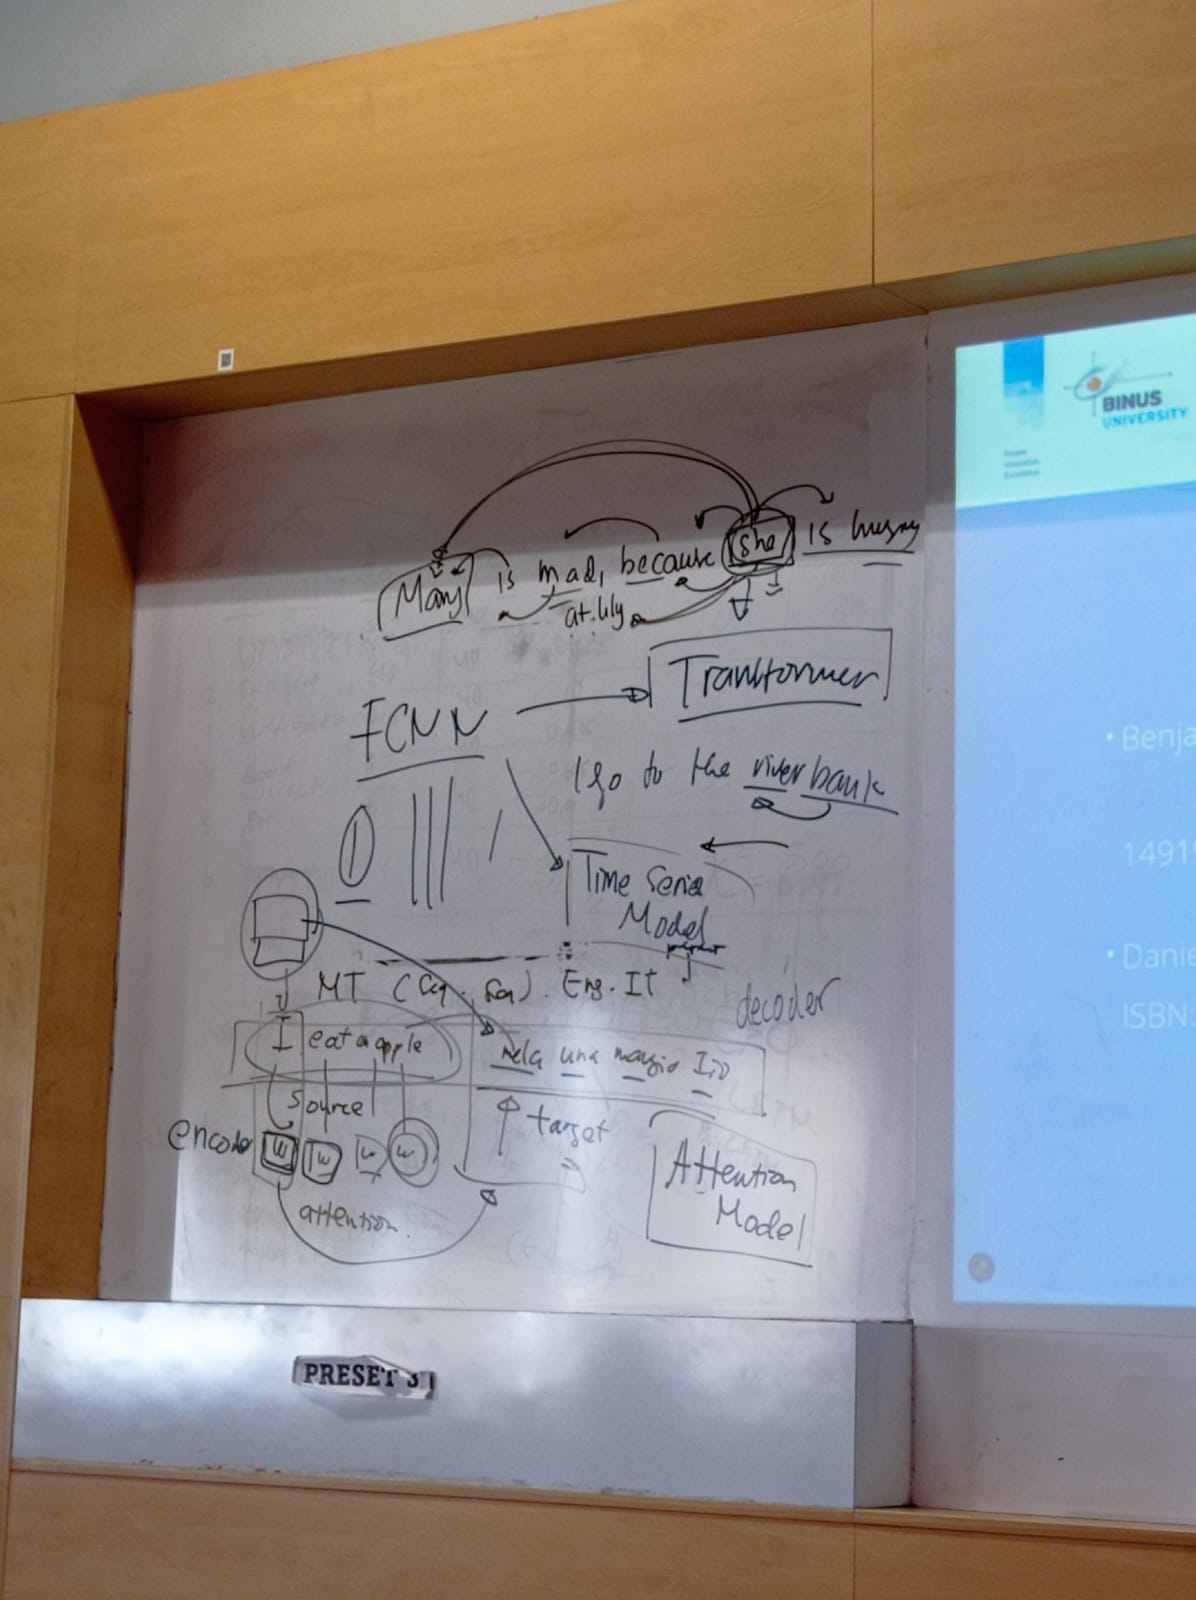 Mary is mad, because she is hungry
at lily
FCNN
Transformer
I go to the river bank
Time Serie
Model
MT (Seq. Seq). Eng. It
decoder
I eat a apple
mela una mangio Io
source
target
encoder
w w w w
attention
Attention
Model
PRESET 3
BINUS
UNIVERSITY
• Benja
1491
• Danie
ISBN: